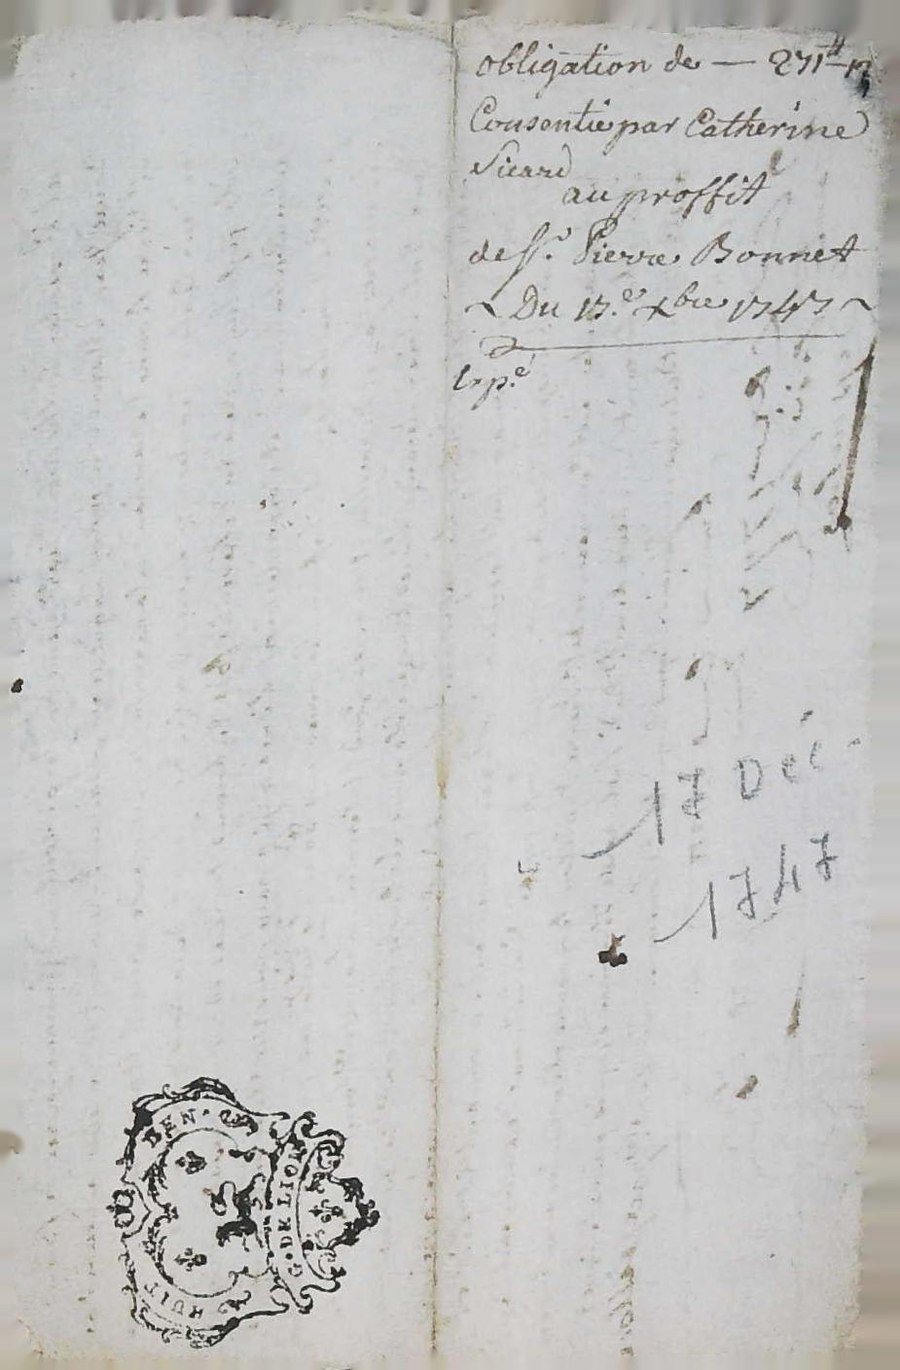 obligation de — 271ᵗᵗ
Consentie par Catherine
Sicard
au proffit
de Sʳ. Pierre Bonnet
~ Du 17.ᵉ xbre 1747 ~
Exp.ᵉ
17 Déc.
1747
DEN.
G. DE LION
HUIT